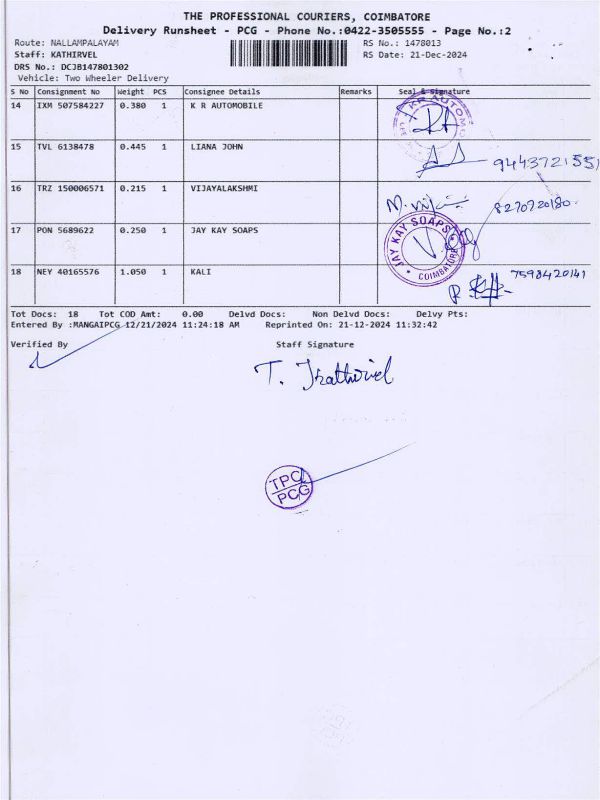 THE PROFESSIONAL COURIERS, COIMBATORE
Delivery Runsheet - PCG - Phone No.:0422-3505555 - Page No.:2
Route: NALLAMPALAYAM RS No.: 1478013
Staff: KATHIRVEL RS Date: 21-Dec-2024
DRS No.: DCJB147801302
Vehicle: Two Wheeler Delivery
S No Consignment No Weight PCS Consignee Details Remarks Seal & Signature
14 IXM 507584227 0.380 1 K R AUTOMOBILE
KR AUTOMO
15 TVL 6138478 0.445 1 LIANA JOHN
9443721551
16 TRZ 150006571 0.215 1 VIJAYALAKSHMI
8270720180
17 PON 5689622 0.250 1 JAY KAY SOAPS
JAY KAY SOAPS
COIMBATORE
18 NEY 40165576 1.050 1 KALI
7598420141
Tot Docs: 18 Tot COD Amt: 0.00 Delvd Docs: Non Delvd Docs: Delvy Pts:
Entered By :MANGAIPCG 12/21/2024 11:24:18 AM Reprinted On: 21-12-2024 11:32:42
Verified By Staff Signature
T. Kathirvel
TPC
PCG